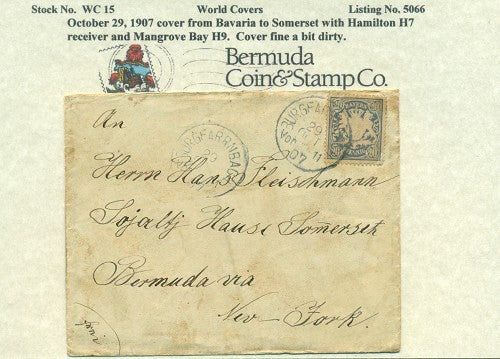 Stock No. WC 15 World Covers Listing No. 5066
October 29, 1907 cover from Bavaria to Somerset with Hamilton H7
receiver and Mangrove Bay H9. Cover fine a bit dirty.
Bermuda
Coin&StampCo.
An
Herrn Hans Fleischmann
Sojaltj Hause Somerseth
Bermuda via
New-York.
BURGFARRNBACH
29
BURGFARRNB
29
OKT
07
BAYERN
20 20
PFENNIG